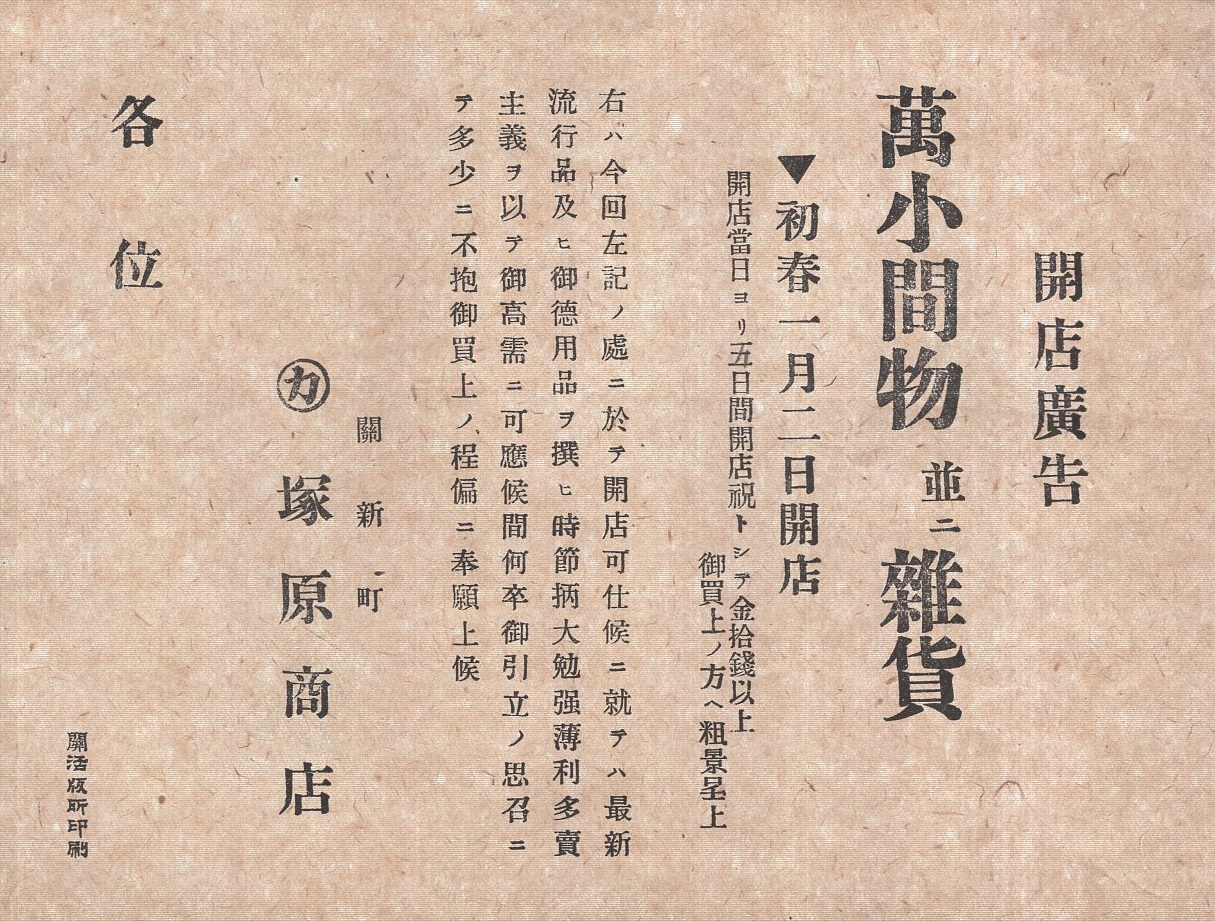 開店廣告
萬小間物 並ニ 雜貨
▼初春一月二日開店
開店當日ヨリ五日間開店祝トシテ金拾錢以上
御買上ノ方ヘ粗景呈上
右ハ今回左記ノ處ニ於テ開店可仕候ニ就テハ最新
流行品及ヒ御德用品ヲ撰ヒ時節柄大勉强薄利多賣
主義ヲ以テ御高需ニ可應候間何卒御引立ノ思召ニ
テ多少ニ不抱御買上ノ程偏ニ奉願上候
關新町
㋕塚原商店
各位
關活版所印刷